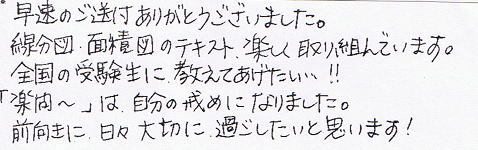 早速のご送付ありがとうございました。
線分図・面積図のテキスト、楽しく取り組んでいます。
全国の受験生に、教えてあげたい‥!!
「楽肉〜」は、自分の戒めになりました。
前向きに、日々大切に、過ごしたいと思います!